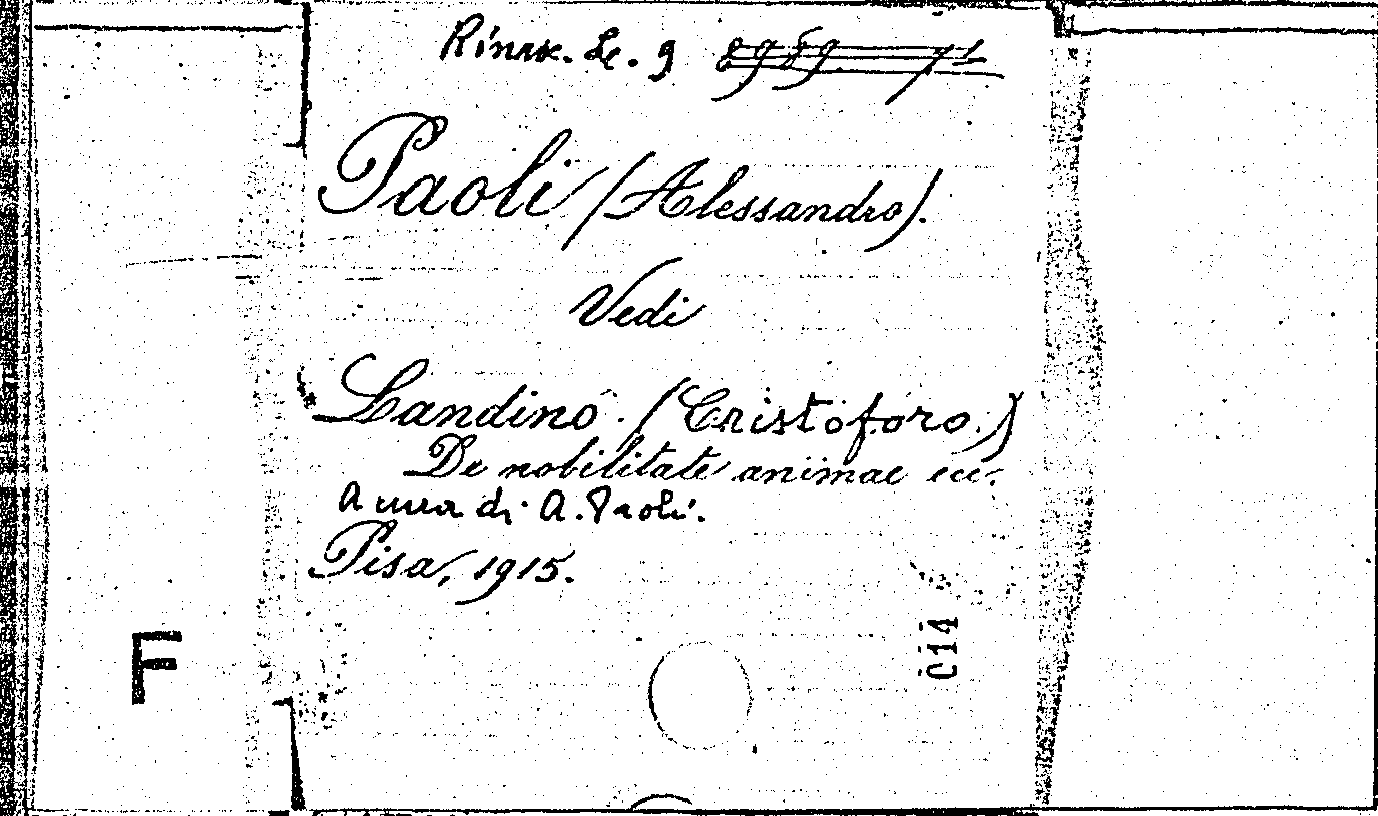 Rinasc. Le. 9 8989 71
Paoli (Alessandro).
Vedi
Landino. (Cristoforo.)
De nobilitate animae ecc.
A cura di A. Paoli.
Pisa, 1915.
C14
F